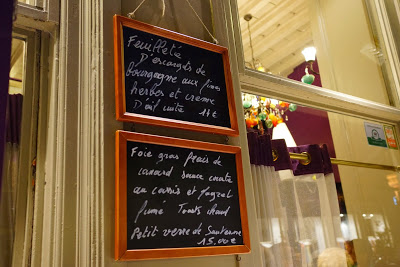 Feuilleté
D'escargots de
bourgogne aux fines
herbes et creme
D'ail 14€
Foie gras frais de
canard sauce
au cassis et
fumé Toasts chaud
Petit verre de Sauternes
15,00€